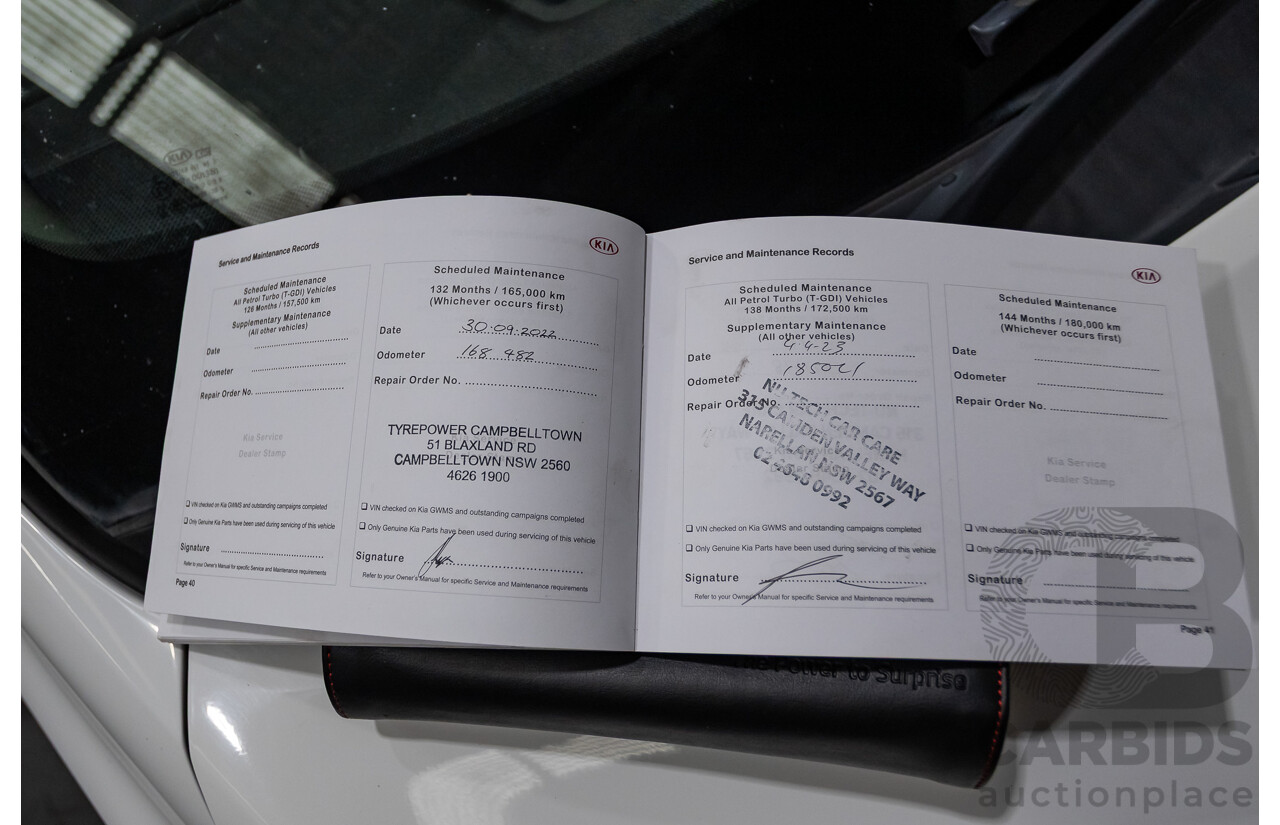 KIA
Service and Maintenance Records
KIA
Scheduled Maintenance
All Petrol Turbo (T-GDI) Vehicles
128 Months / 157,500 km
Supplementary Maintenance
(All other vehicles)
Date
Odometer
Repair Order No.
Kia Service
Dealer Stamp
❑ VIN checked on Kia GWMS and outstanding campaigns completed
❑ Only Genuine Kia Parts have been used during servicing of this vehicle
Signature
Refer to your Owner's Manual for specific Service and Maintenance requirements
Page 40
Scheduled Maintenance
132 Months / 165,000 km
(Whichever occurs first)
Date 30.09.2022
Odometer 168 482
Repair Order No.
TYREPOWER CAMPBELLTOWN
51 BLAXLAND RD
CAMPBELLTOWN NSW 2560
4626 1900
❑ VIN checked on Kia GWMS and outstanding campaigns completed
❑ Only Genuine Kia Parts have been used during servicing of this vehicle
Signature
Refer to your Owner's Manual for specific Service and Maintenance requirements
Service and Maintenance Records
KIA
Scheduled Maintenance
All Petrol Turbo (T-GDI) Vehicles
138 Months / 172,500 km
Supplementary Maintenance
(All other vehicles)
Date 4-4-23
Odometer
Repair Order No.
NU TECH CAR CARE
315 CAMDEN VALLEY WAY
NARELLAN NSW 2567
02 4646 0992
❑ VIN checked on Kia GWMS and outstanding campaigns completed
❑ Only Genuine Kia Parts have been used during servicing of this vehicle
Signature
Refer to your Owner's Manual for specific Service and Maintenance requirements
Scheduled Maintenance
144 Months / 180,000 km
(Whichever occurs first)
Date
Odometer
Repair Order No.
Kia Service
Dealer Stamp
❑ VIN checked on Kia GWMS and outstanding campaigns completed
❑ Only Genuine Kia Parts have been used during servicing of this vehicle
Signature
Refer to your Owner's Manual for specific Service and Maintenance requirements
Page 41
The Power to Surprise
CARBIDS
auctionplace